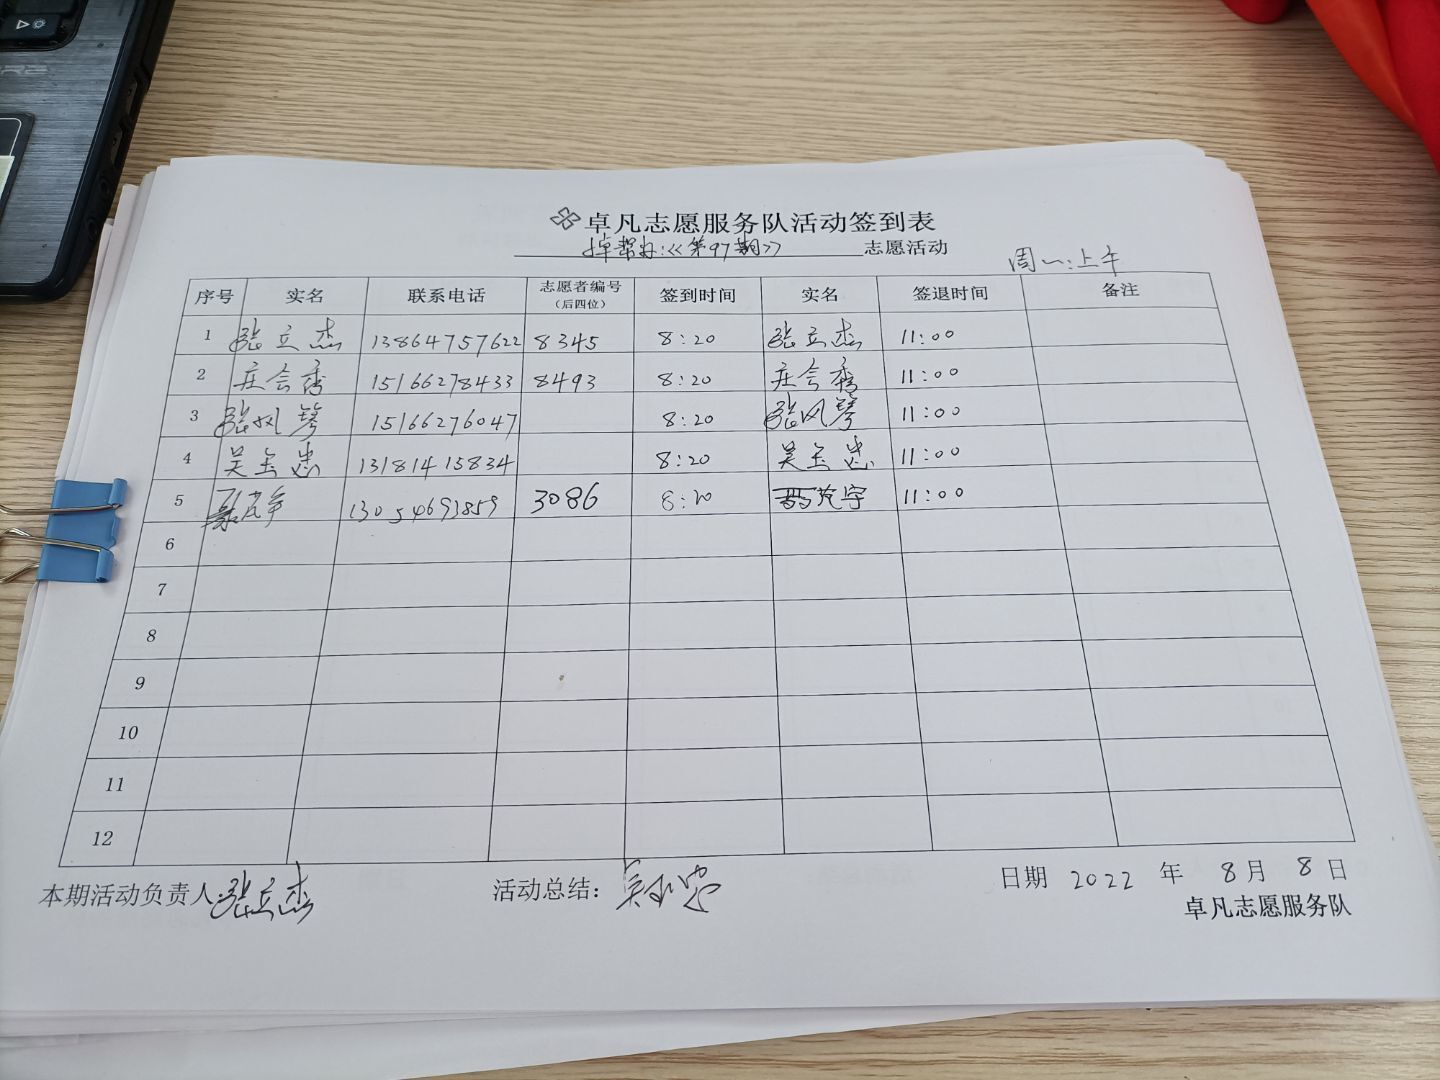 卓凡志愿服务队活动签到表
帮办:《第97期》 志愿活动
周一:上午
序号 实名 联系电话 志愿者编号（后四位） 签到时间 实名 签退时间 备注
1 张立杰 13864757622 8345 8:20 张立杰 11:00
2 庄会秀 15166278433 8493 8:20 庄会秀 11:00
3 张风琴 15166276047 8:20 张风琴 11:00
4 吴玉忠 13181415834 8:20 吴玉忠 11:00
5 13054693859 3086 8:20 11:00
6
7
8
9
10
11
12
本期活动负责人:张立杰 活动总结: 吴玉忠 日期 2022 年 8月 8日
卓凡志愿服务队